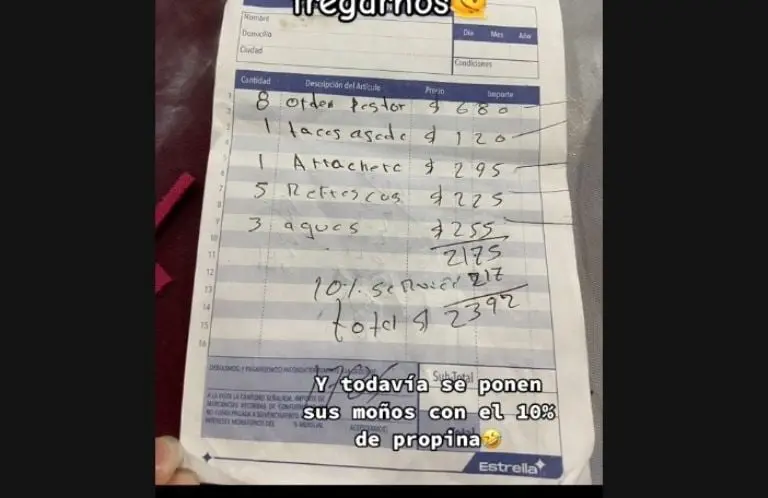 fregarnos
Nombre
Domicilio
Ciudad
Día Mes Año
Condiciones
Cantidad Descripción del Artículo Precio Importe
8 orden Pastor $ 680
1 tacos asada $ 120
1 Arrachera $ 295
5 Refrescos $ 225
3 aguas $ 255
2175
10% servicio 217
total $ 2392
1
2
3
4
5
6
7
8
9
10
11
12
13
14
15
16
Sub-Total
Y todavía se ponen
sus moños con el 10%
de propina
Estrella